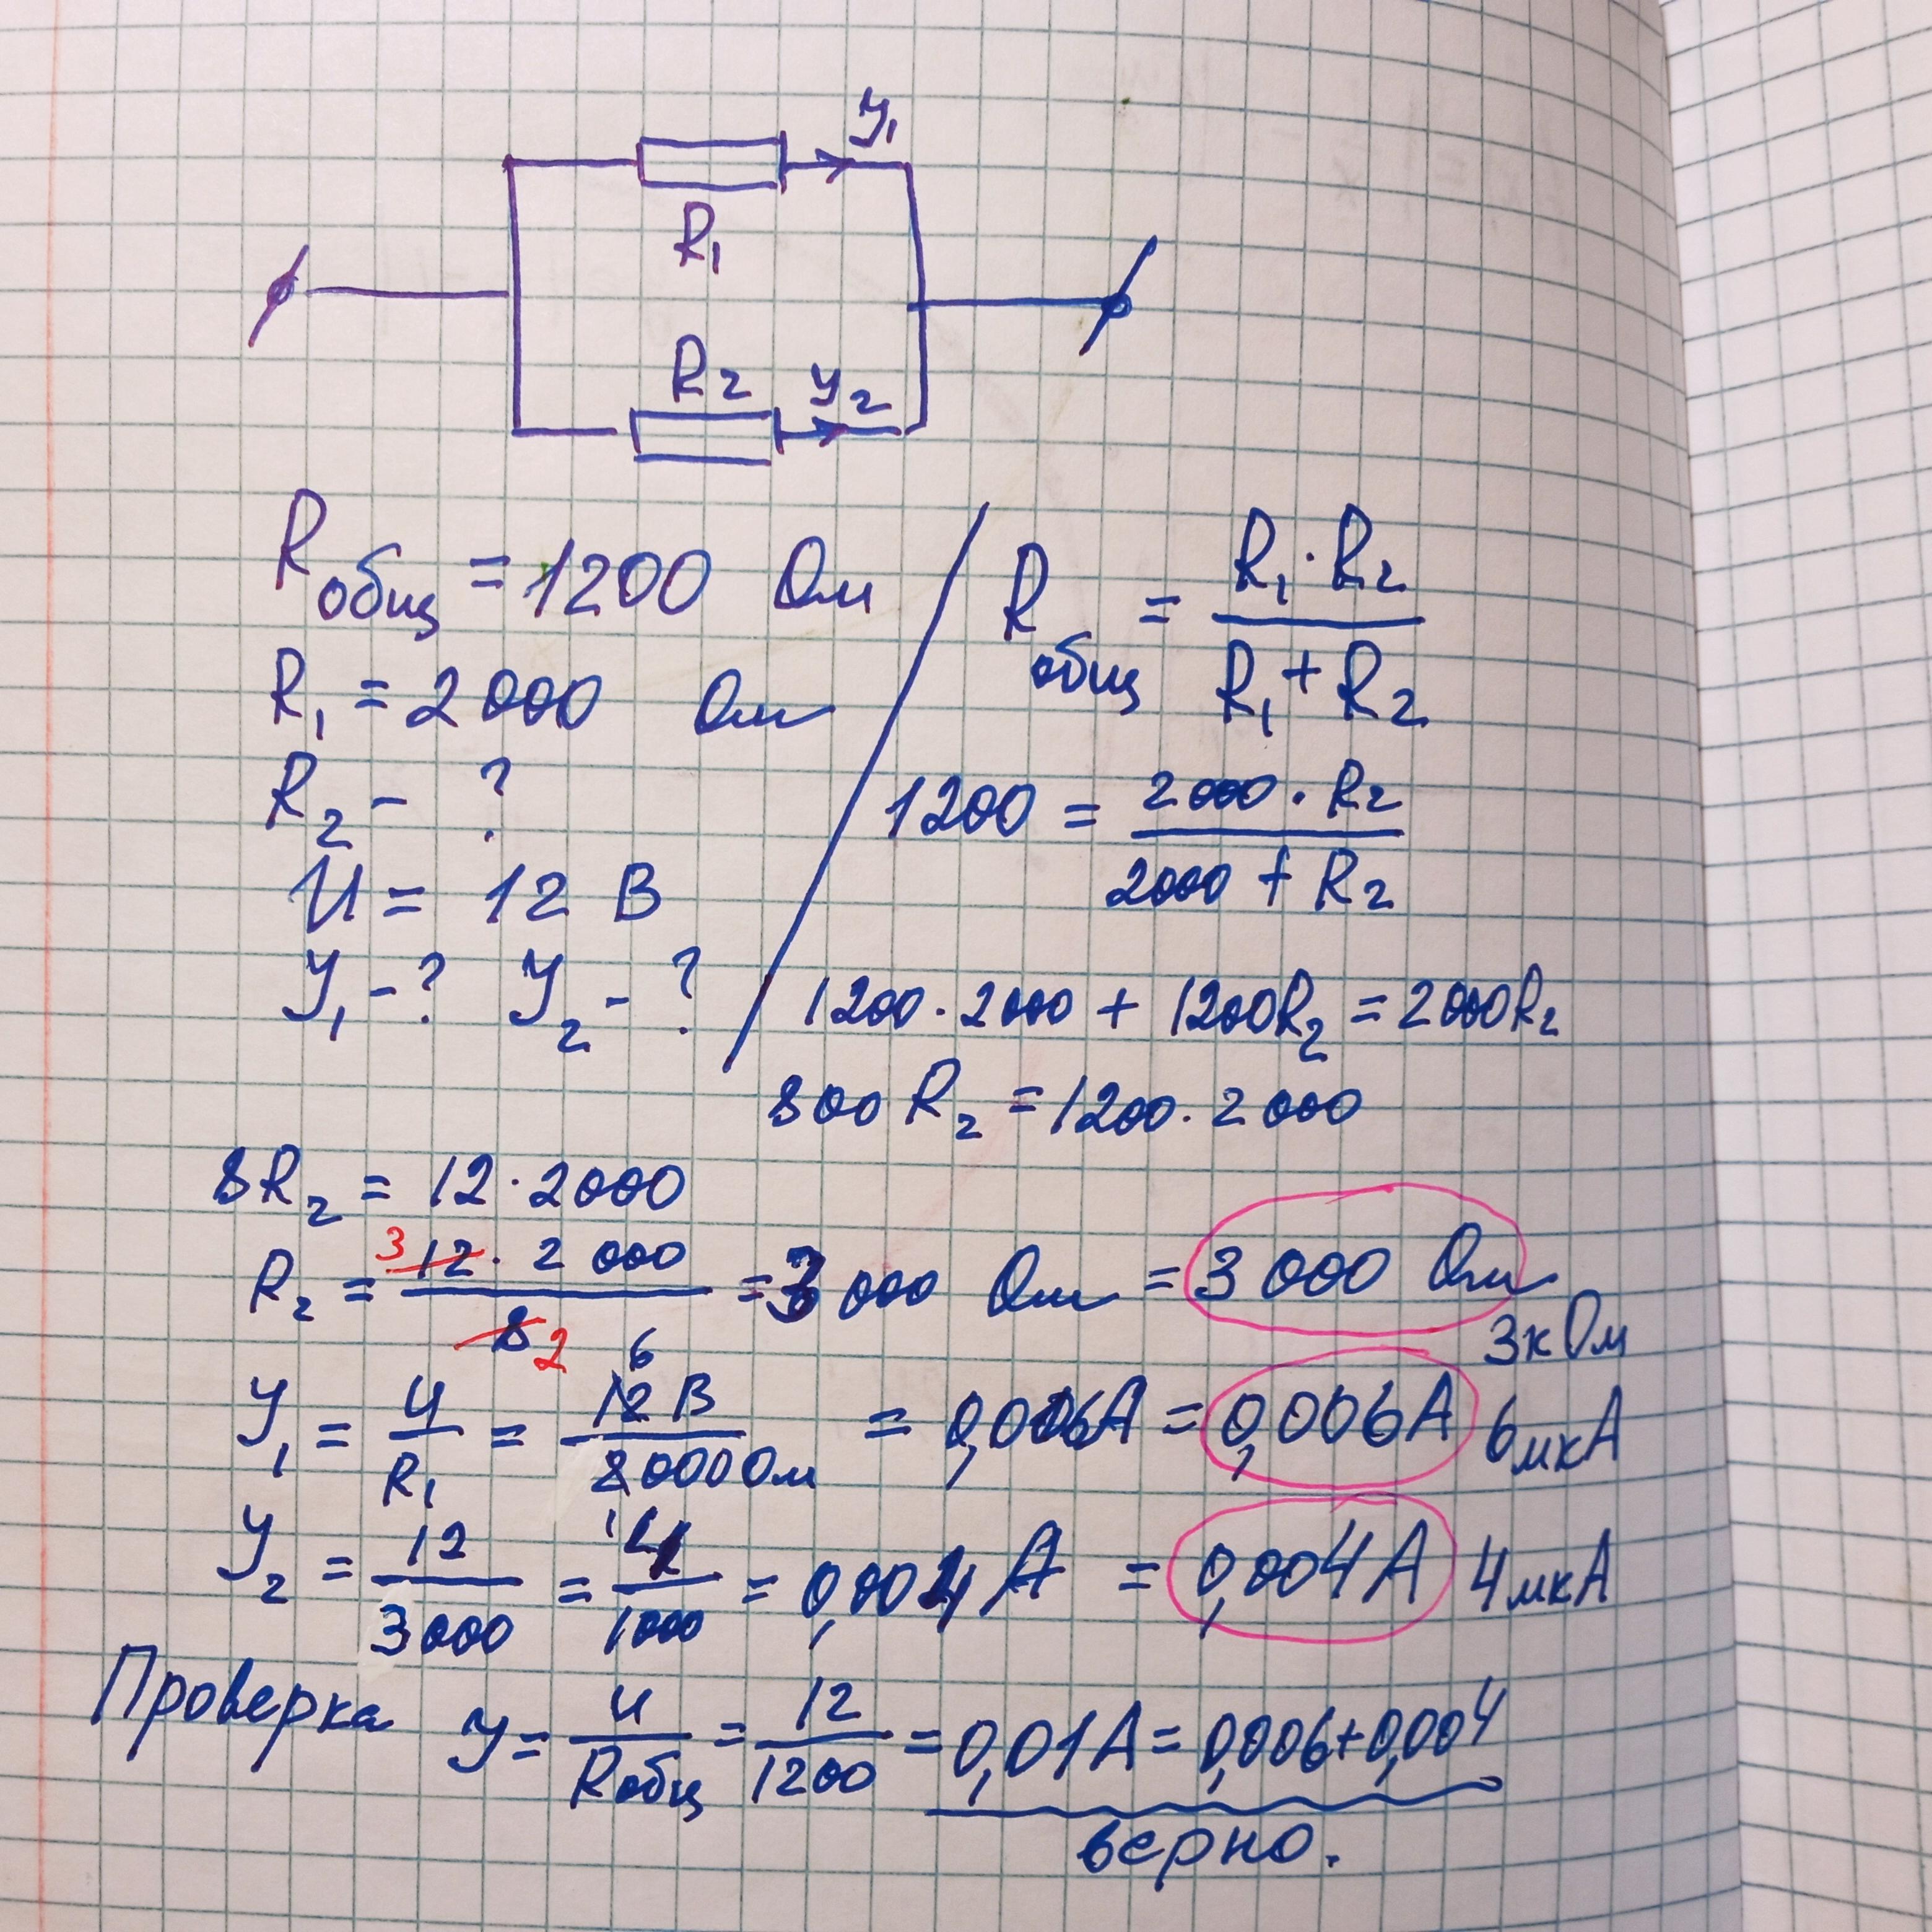 У₁
R₁
R₂ У₂
Rобщ = 1200 Ом
R₁ = 2000 Ом
R₂ - ?
U = 12 В
У₁ - ? У₂ - ?
Rобщ = R₁ · R₂ / R₁ + R₂
1200 = 2000 · R₂ / 2000 + R₂
1200 · 2000 + 1200R₂ = 2000R₂
800 R₂ = 1200 · 2000
8R₂ = 12 · 2000
R₂ = 3 12 · 2 000 / 8 2 = 3 000 Ом = 3 000 Ом
3 кОм
У₁ = U / R₁ = 6 12 В / 2000 Ом = 0,006А = 0,006А 6мкА
У₂ = 12 / 3000 = 4 / 1000 = 0,004 А = 0,004А 4мкА
Проверка У = U / Rобщ = 12 / 1200 = 0,01А = 0,006+0,004
верно.